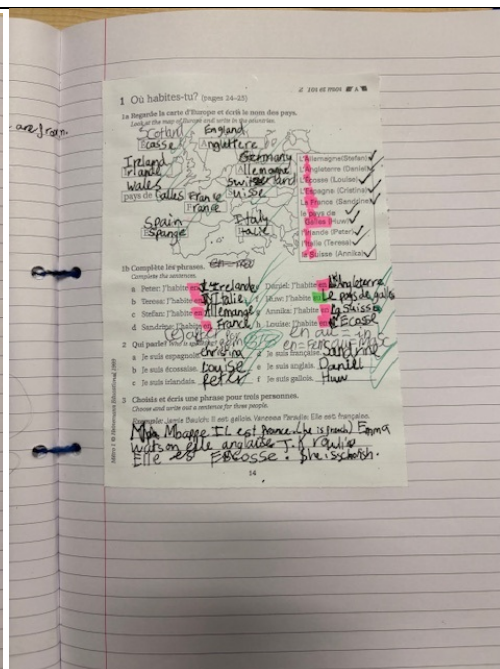 are from.
2 Toi et moi A
1 Où habites-tu? (pages 24–25)
1a Regarde la carte d'Europe et écris le nom des pays.
Look at the map of Europe and write in the countries.
Scotland England
Ecosse Angleterre
Ireland Germany
Irlande Allemagne
Wales Switzerland
pays de Galles Suisse
France
France
Spain Italy
Espange Italie
L'Allemagne (Stefan)
L'Angleterre (Daniel)
L'Ecosse (Louise)
L'Espagne (Cristina)
La France (Sandrine)
le pays de
Galles (Huw)
L'Irlande (Peter)
L'Italie (Teresa)
la Suisse (Annika)
1b Complète les phrases.
Complete the sentences.
a Peter: J'habite en Irelande
b Teresa: J'habite en Italie
c Stefan: J'habite en Allemange
d Sandrine: J'habite en France
e Daniel: J'habite en Angleterre
f Huw: J'habite Le pays de galles
g Annika: J'habite en la Suisse
h Louise: J'habite en Ecosse
en au = in
2 Qui parle?
a Je suis espagnole. christina
b Je suis écossaise. Louise
c Je suis irlandais. Peter
d Je suis française. Sandrine
e Je suis anglais. Daniel
f Je suis gallois. Huw
3 Choisis et écris une phrase pour trois personnes.
Choose and write out a sentence for three people.
Exemple: Jamie Baulch: Il est gallois. Vanessa Paradis: Elle est française.
Mbappe IL est france. (he is french) Emma
watson elle anglaise J.K rouling
Elle es Ecosse. She is schotish.
14